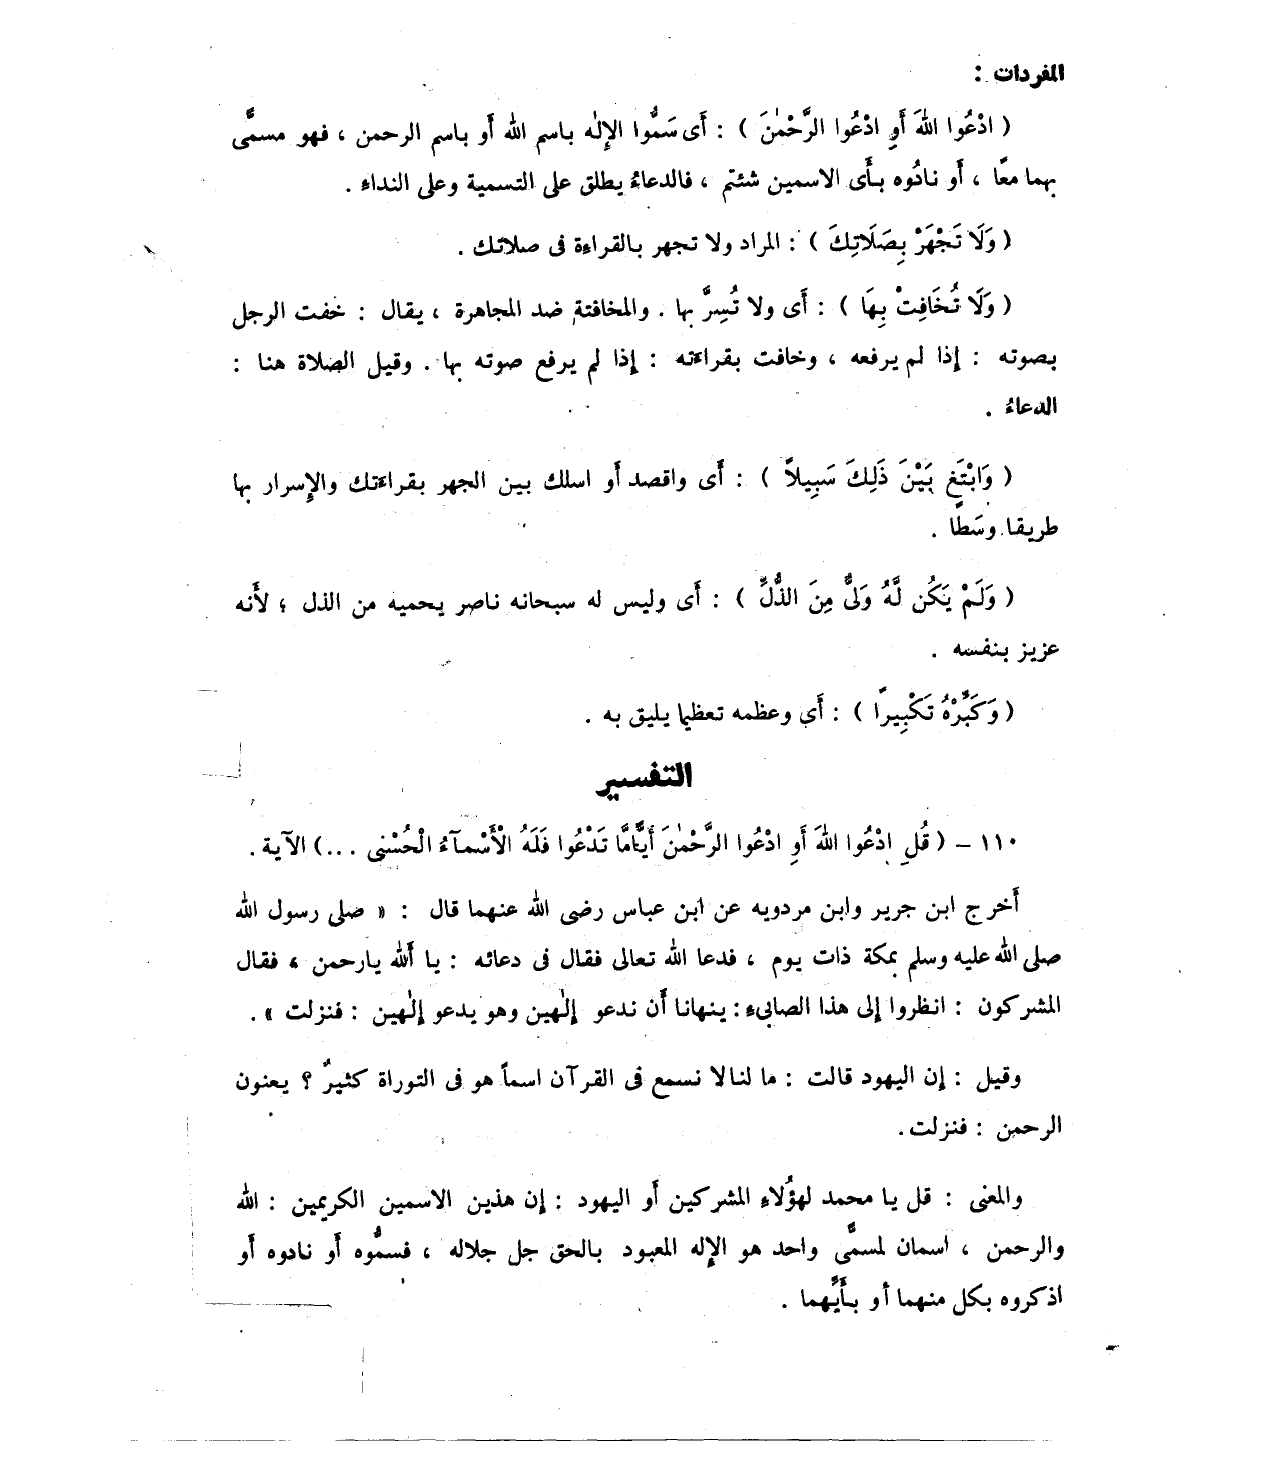 المفردات :
( ادْعُوا اللهَ أَوِ ادْعُوا الرَّحْمٰنَ ) : أَى سَمُّوا الإِلٰه باسم الله أَو باسم الرحمن ، فهو مسمًّى
بهما معًا ، أَو نادُوه بأَى الاسمين شئتم ، فالدعاءُ يطلق على التسمية وعلى النداء .
( وَلَا تَجْهَرْ بِصَلَاتِكَ ) : المراد ولا تجهر بالقراءة فى صلاتك .
( وَلَا تُخَافِتْ بِهَا ) : أَى ولا تُسِرَّ بها . والمخافتة ضد المجاهرة ، يقال : خفت الرجل
بصوته : إِذا لم يرفعه ، وخافت بقراءته : إِذا لم يرفع صوته بها . وقيل الصلاة هنا :
الدعاءُ .
( وَابْتَغِ بَيْنَ ذَلِكَ سَبِيلاً ) : أَى واقصد أَو اسلك بين الجهر بقراءتك والإِسرار بها
طريقا وسَطًا .
( وَلَمْ يَكُن لَّهُ وَلِىٌّ مِنَ الذُّلِّ ) : أَى وليس له سبحانه ناصر يحميه من الذل ؛ لأَنه
عزيز بنفسه .
( وَكَبِّرْهُ تَكْبِيرًا ) : أَى وعظمه تعظيما يليق به .
التفسير
١١٠ - ( قُلِ ادْعُوا اللهَ أَوِ ادْعُوا الرَّحْمٰنَ أَيًّامَّا تَدْعُوا فَلَهُ الْأَسْمَآءُ الْحُسْنٰى ...) الآية .
أَخرج ابن جرير وابن مردويه عن ابن عباس رضى الله عنهما قال : « صلى رسول الله
صلى الله عليه وسلم بمكة ذات يوم ، فدعا الله تعالى فقال فى دعائه : يا أَلله يارحمن ، فقال
المشركون : انظروا إِلى هذا الصابىء : ينهانا أَن ندعو إِلٰهين وهو يدعو إِلٰهين : فنزلت » .
وقيل : إِن اليهود قالت : ما لنا لا نسمع فى القرآن اسماً هو فى التوراة كثيرٌ ؟ يعنون
الرحمن : فنزلت .
والمعنى : قل يا محمد لهؤُلاءِ المشركين أَو اليهود : إِن هذين الاسمين الكريمين : الله
والرحمن ، اسمان لمسمًّى واحد هو الإِله المعبود بالحق جل جلاله ، فسمُّوه أَو نادوه أَو
اذكروه بكل منهما أو بأَيِّهما .